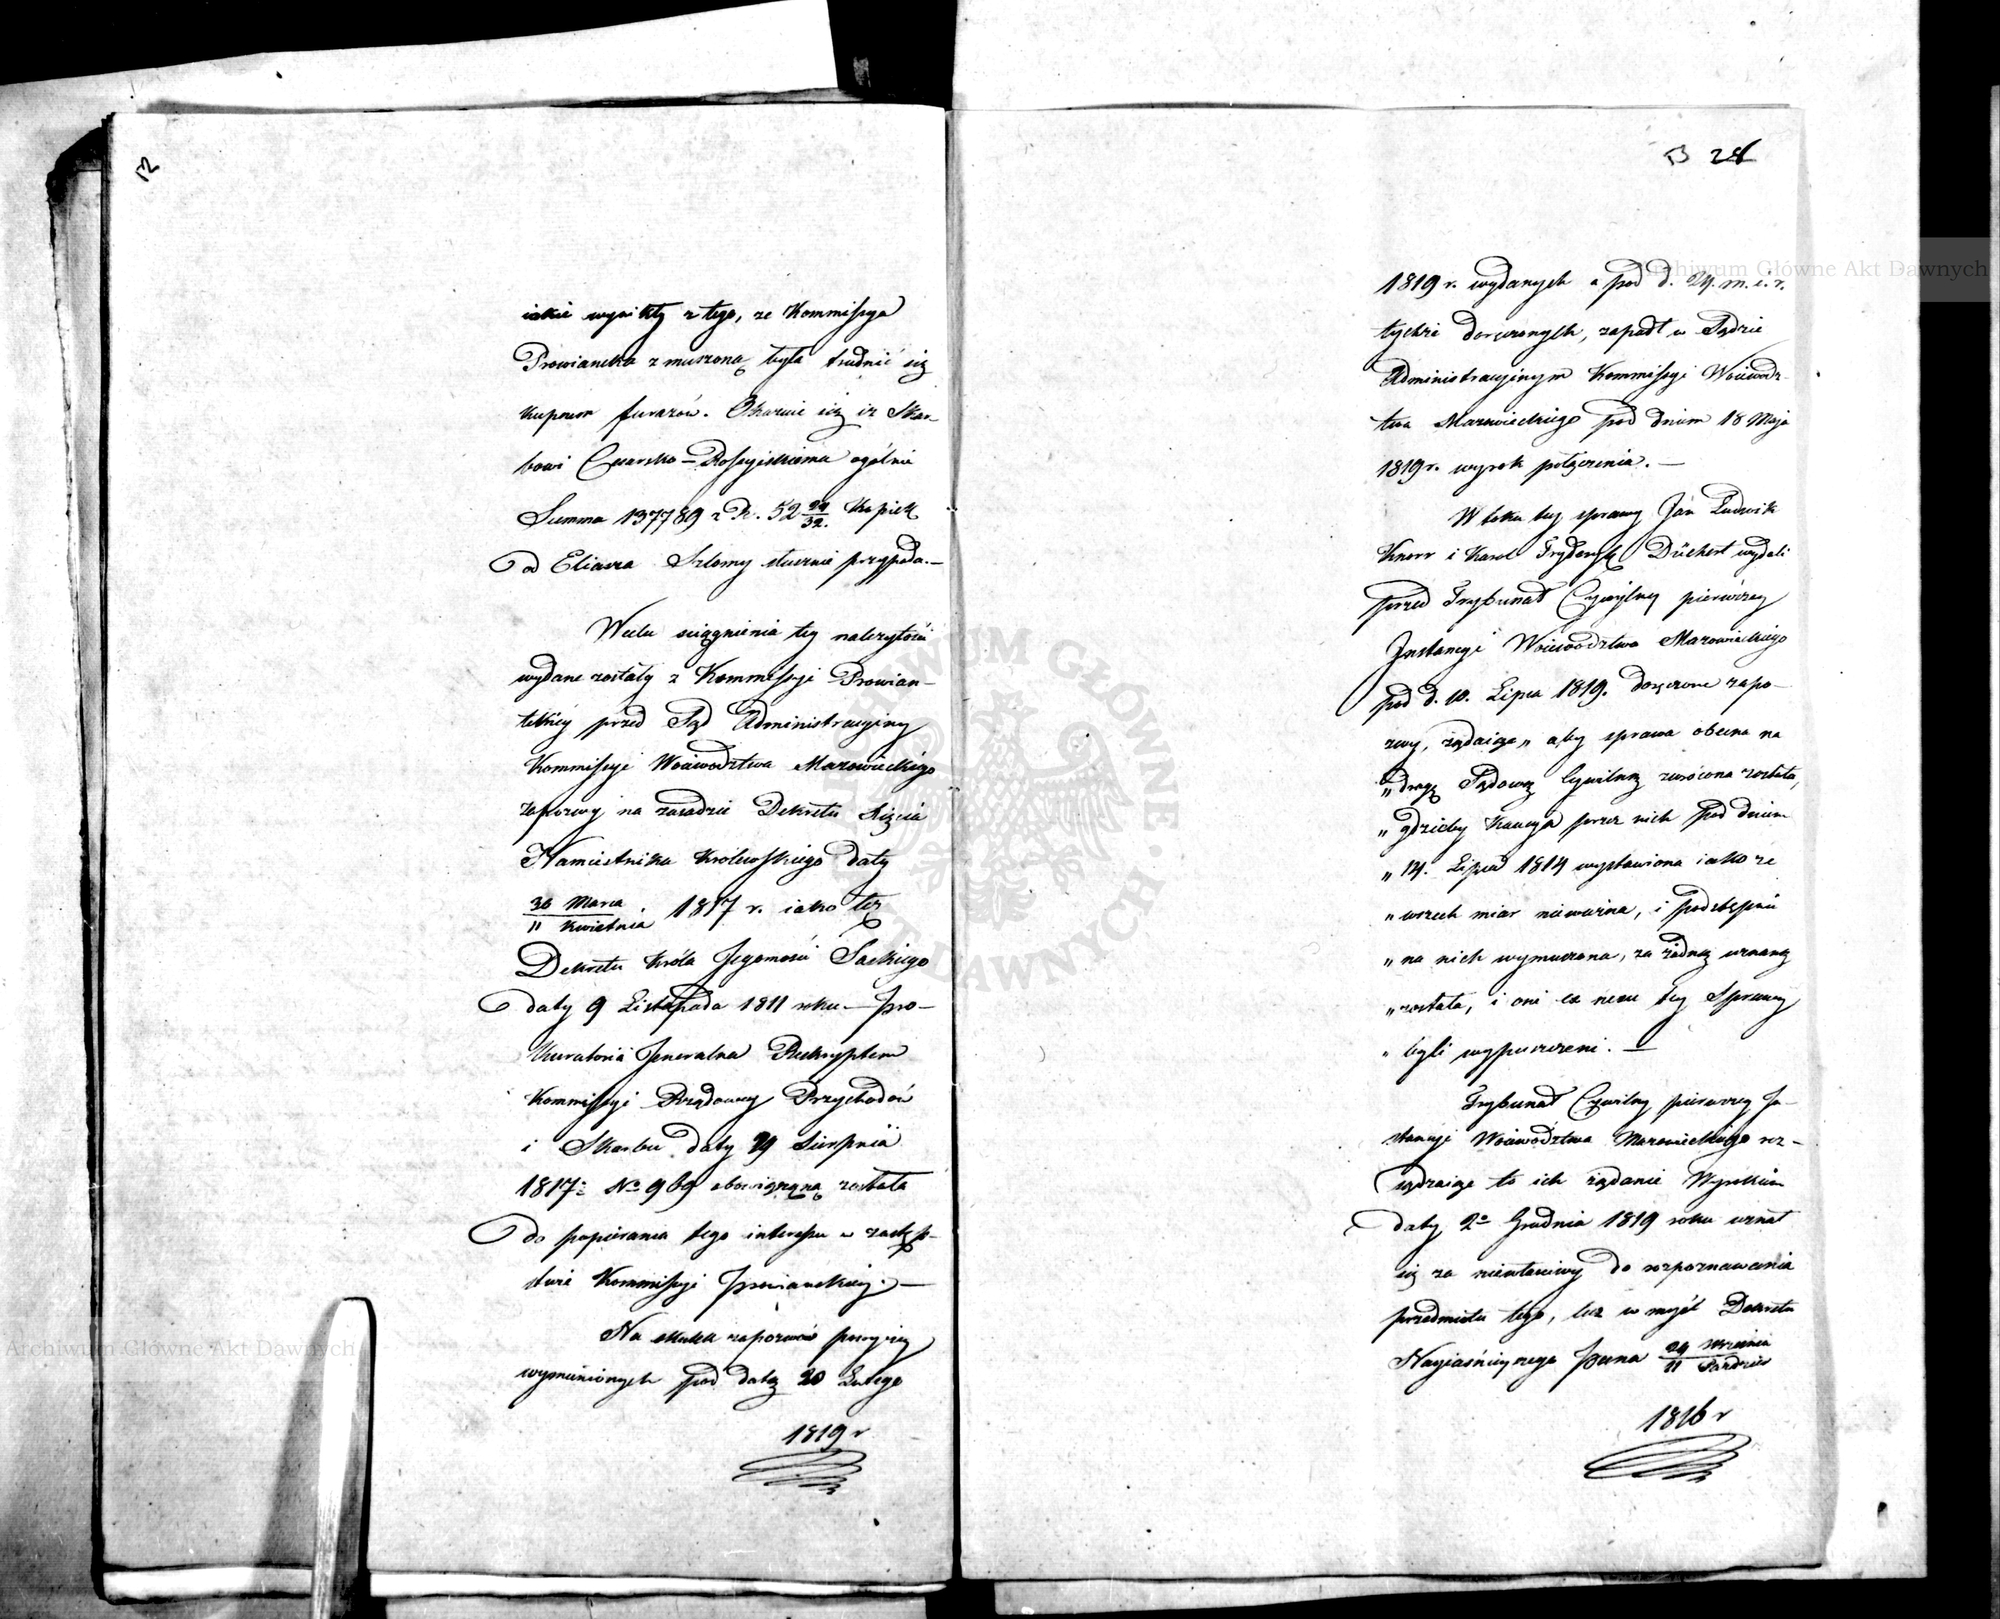 52
iakie wynikły z tego, że Kommissya
Prowiancka zmuszoną była trudnić się
kupnem furażów. Okazuie się iż Skar-
bowi Cesarsko-Rossyiskiemu ogólnie
Summa 137789 r Pr. 52 29/32. Kopiek
od Eliasza Szlomy słusznie przypada.—
W celu ściągnienia tey należytości
wydane zostały z Kommissyi Prowian-
tckiéy przed Sąd Administracyiny
Kommissyi Woiewodztwa Mazowieckiego
zapozwy na zasadzie Dekretu Xięcia
Namiestnika Królewskiego daty
30 Marca / 11 Kwietnia 1817 r. iako też
Dekretu Króla Jegomości Saskiego
daty 9 Listopada 1811 roku — Pro-
kuratoria Jeneralna Reskryptem
Kommissyi Rządowey Przychodów
i Skarbu daty 29 Sierpnia
1817: No 969 obowiązaną została
do popierania tego interessu w zastęp-
stwie Kommissyi Prowianckiéy.—
Na skutek zapozwów powyżey
wymienionych pod datą 20 Lutego
1819 r
53 28
Archiwum Główne Akt Dawnych
1819 r. wydanych a pod d. 24. m. i. r.
tychże doręczonych, zapadł w Sądzie
Administracyinym Kommissyi Woiewodz-
twa Mazowieckiego pod dniem 18 Maja
1819 r. wyrok połączenia.—
W toku tey sprawy Jan Ludwik
Knorr i Karol Fryderyk Dückert wydali
przed Trybunał Cywilny pierwszey
Instancyi Woiewodztwa Mazowieckiego
pod d. 10. Lipca 1819. doręczone zapo-
zwy, żądaiąc „ aby sprawa obecna na
„ drogę Sądową Cywilną zwrócona została,
„ gdzieby kaucya przez nich pod dniem
„ 14. Lipca 1814 wystawiona iako ze
„ wszech miar nieważna, i podstępnie
„ na nich wymuszona, za żadną uznaną
„ została, i oni ex nexu tey Sprawy
„ byli wypuszczeni.—
Trybunał Cywilny pierwszey In-
stancyi Woiewodztwa Mazowieckiego roz-
sądzaiąc to ich żądanie Wyrokiem
daty 2o Grudnia 1819 roku uznał
się za niewłaściwy do rozpoznawania
przedmiotu tego, lecz w myśl Dekretu
Nayiaśnieyszego Pana 29 Września / 11 Paździer
1816 r
Archiwum Główne Akt Dawnych
ARCHIWUM GŁÓWNE AKT DAWNYCH